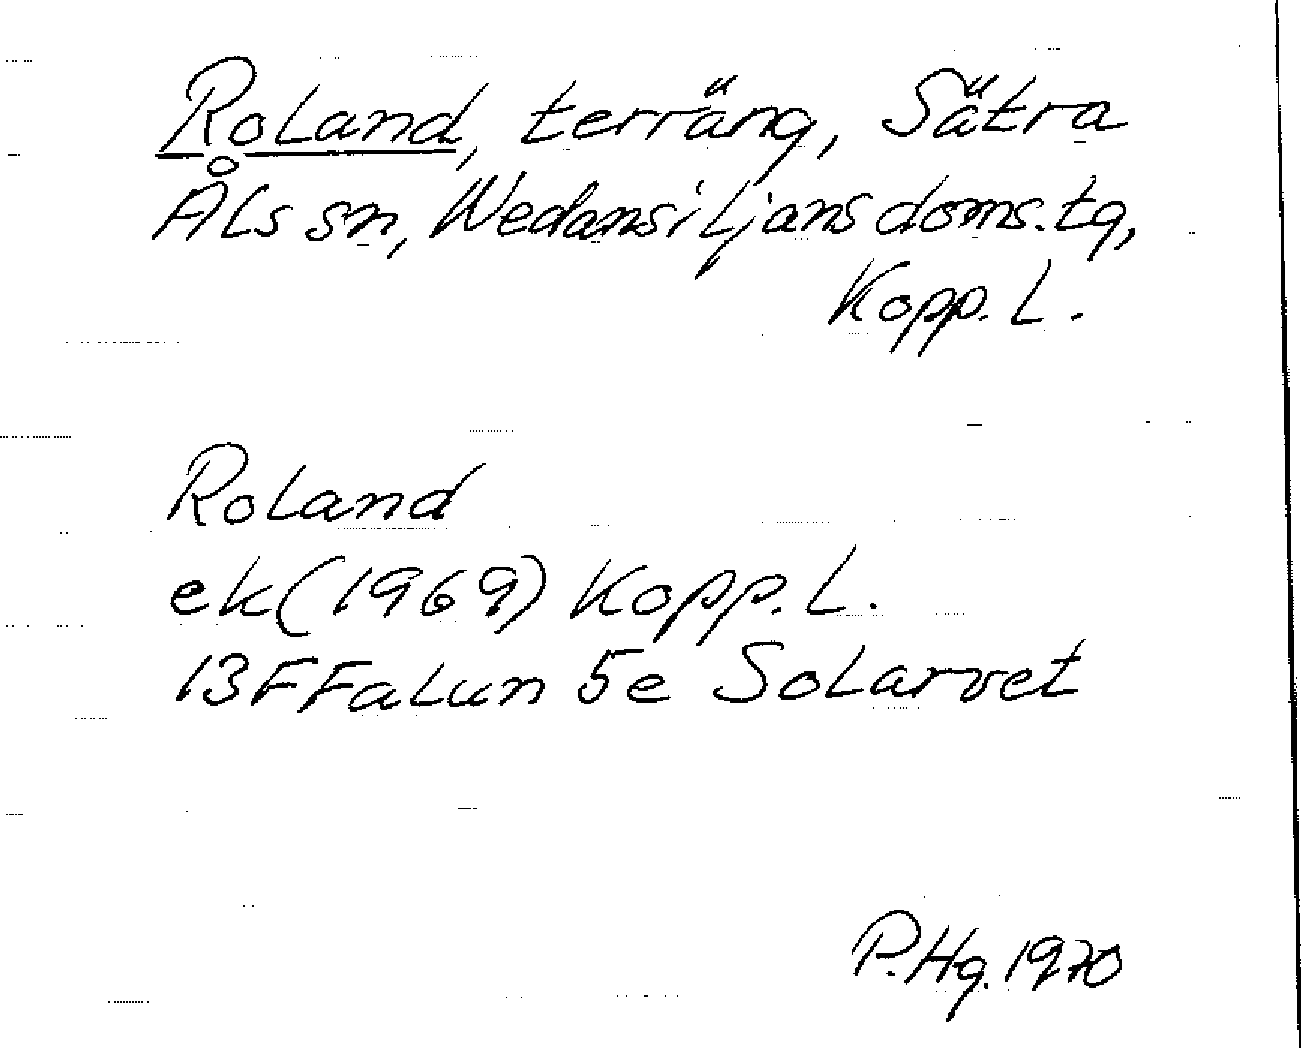 Roland, terräng, Sätra
Åls sn, Nedansiljans doms.tg,
Kopp. L.
Roland
ek (1969) Kopp. L.
13F Falun 5e Solarvet
P.Hg. 1970